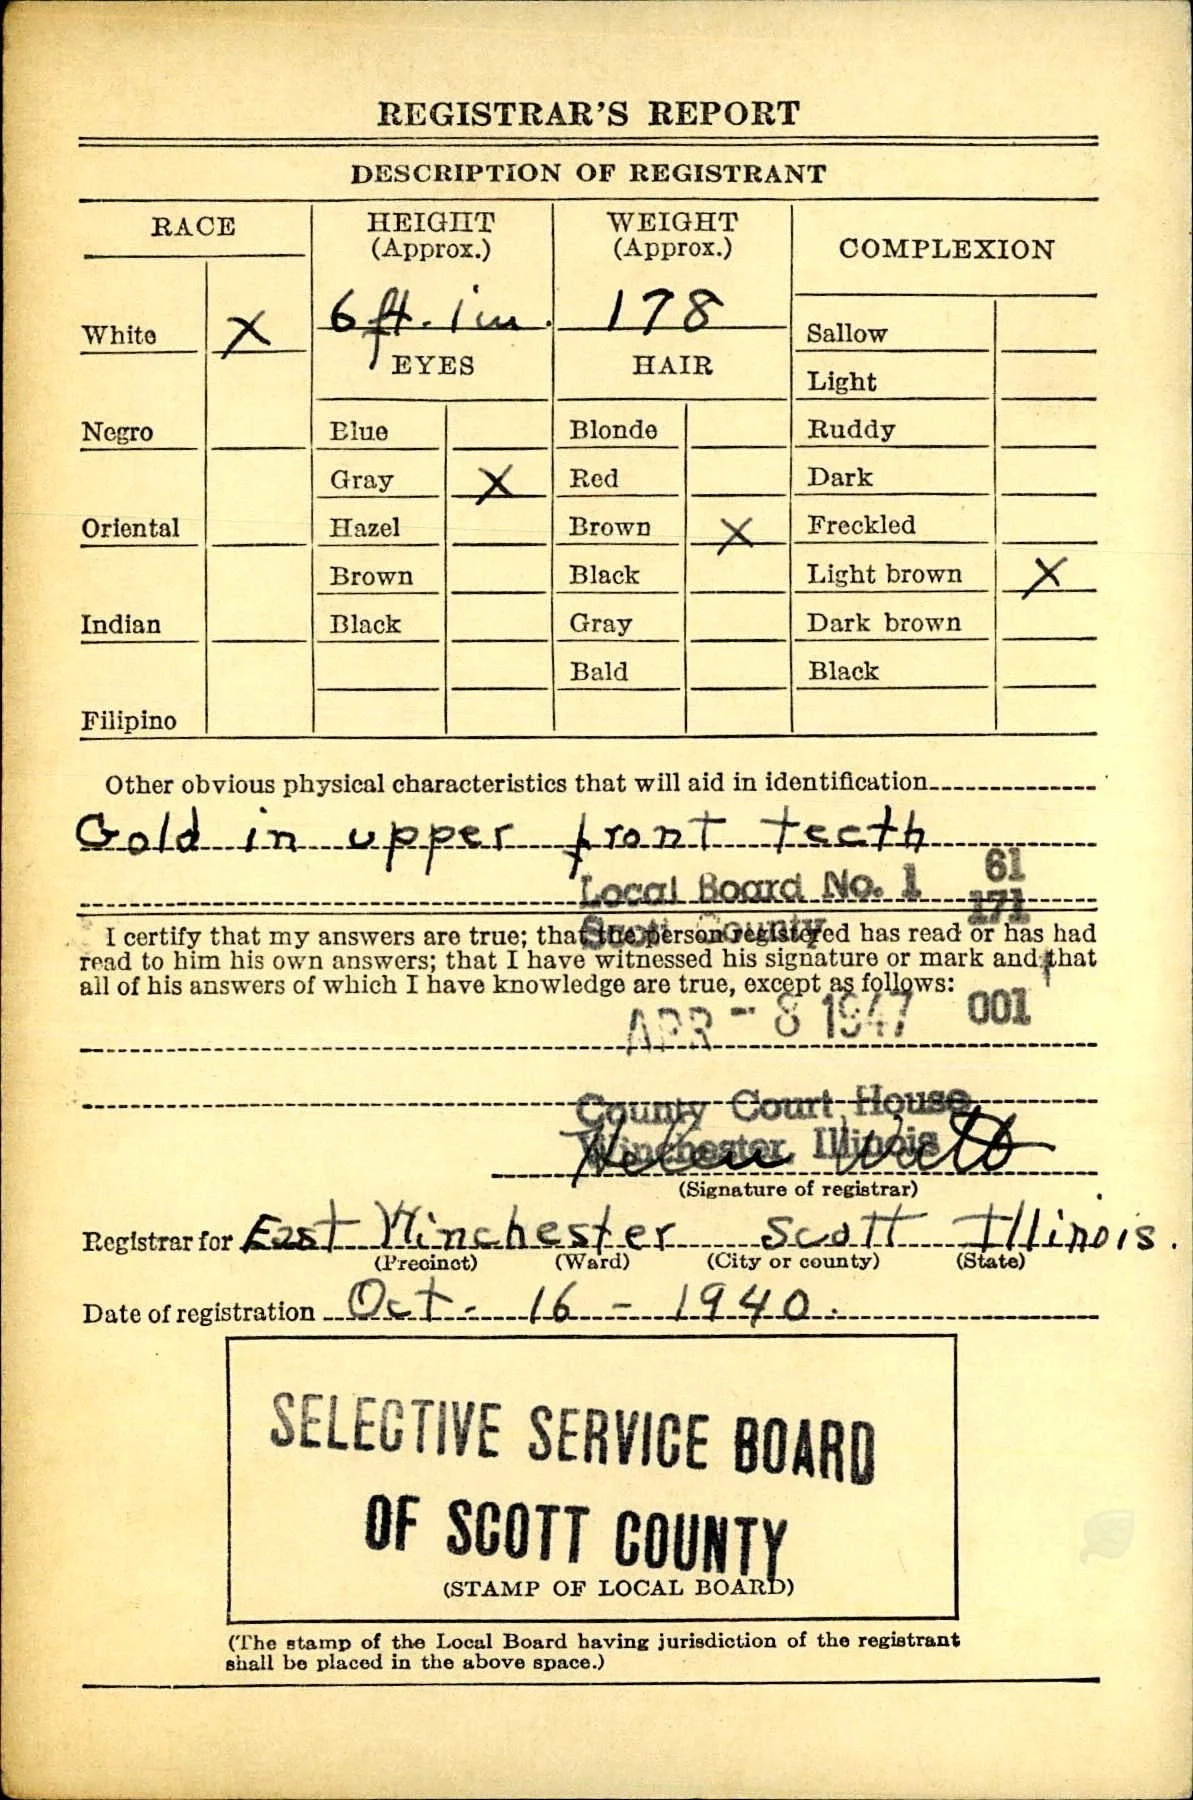 REGISTRAR'S REPORT
DESCRIPTION OF REGISTRANT
RACE
HEIGHT
(Approx.)
WEIGHT
(Approx.)
COMPLEXION
6 ft. 1 in.
178
White X
Sallow
EYES
HAIR
Light
Negro
Blue
Blonde
Ruddy
Gray X
Red
Dark
Oriental
Hazel
Brown X
Freckled
Brown
Black
Light brown X
Indian
Black
Gray
Dark brown
Bald
Black
Filipino
Other obvious physical characteristics that will aid in identification
Gold in upper front teeth
Local Board No. 1 61
Scott County 171
I certify that my answers are true; that the person registered has read or has had
read to him his own answers; that I have witnessed his signature or mark and that
all of his answers of which I have knowledge are true, except as follows:
APR - 8 1947 001
County Court House
Winchester, Illinois
Helen Watt
(Signature of registrar)
Registrar for East Winchester Scott Illinois.
(Precinct) (Ward) (City or county) (State)
Date of registration Oct - 16 - 1940.
SELECTIVE SERVICE BOARD
OF SCOTT COUNTY
(STAMP OF LOCAL BOARD)
(The stamp of the Local Board having jurisdiction of the registrant
shall be placed in the above space.)